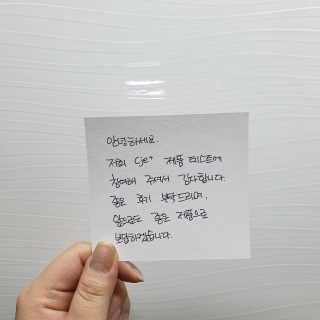 안녕하세요.
저희 cje* 제품 테스트에
참여해 주셔서 감사합니다.
좋은 후기 부탁드리며,
앞으로도 좋은 제품으로
보답하겠습니다.